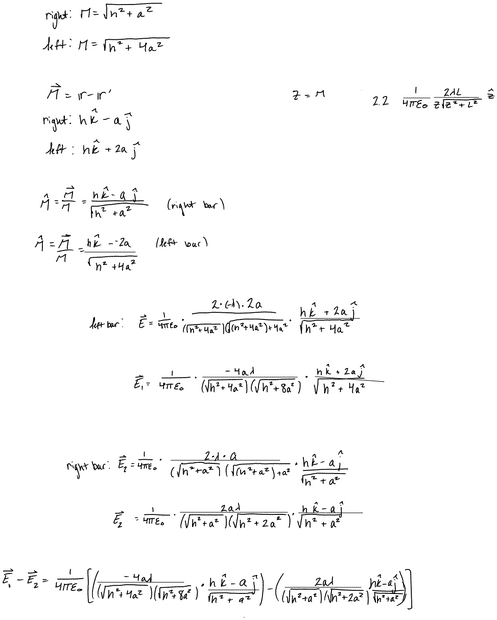 right: 𝓇 = √(h² + a²)
left: 𝓇 = √(h² + 4a²)
𝓇⃗ = 𝐫 − 𝐫'
z = 𝓇
2.2 1/(4πε₀) 2λL/(z√(z² + L²)) ẑ
right: hk̂ − aĵ
left: hk̂ + 2aĵ
𝓇̂ = 𝓇⃗/𝓇 = (hk̂ − aĵ)/√(h² + a²) (right bar)
𝓇̂ = 𝓇⃗/𝓇 = (hk̂ − −2a)/√(h² + 4a²) (left bar)
left bar: E⃗ = 1/(4πε₀) · 2·(−λ)·2a/((√(h² + 4a²))(√((h² + 4a²) + 4a²)) · (hk̂ + 2aĵ)/√(h² + 4a²)
E⃗₁ = 1/(4πε₀) · −4aλ/((√(h² + 4a²))(√(h² + 8a²))) · (hk̂ + 2aĵ)/√(h² + 4a²)
right bar: E⃗₂ = 1/(4πε₀) · 2·λ·a/((√(h² + a²))(√((h² + a²) + a²)) · (hk̂ − aĵ)/√(h² + a²)
E⃗₂ = 1/(4πε₀) · 2aλ/((√(h² + a²))(√(h² + 2a²))) · (hk̂ − aĵ)/√(h² + a²)
E⃗₁ − E⃗₂ = 1/(4πε₀) [(−4aλ/((√(h² + 4a²))(√(h² + 8a²))) · (hk̂ − aĵ)/√(h² + a²)) − (2aλ/((√(h² + a²))(√(h² + 2a²))) (hk̂ − aĵ)/√(h² + a²))]